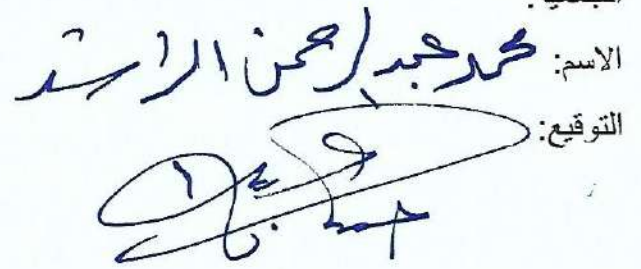 الاسم: محمد عبد الرحمن الراشد
التوقيع: